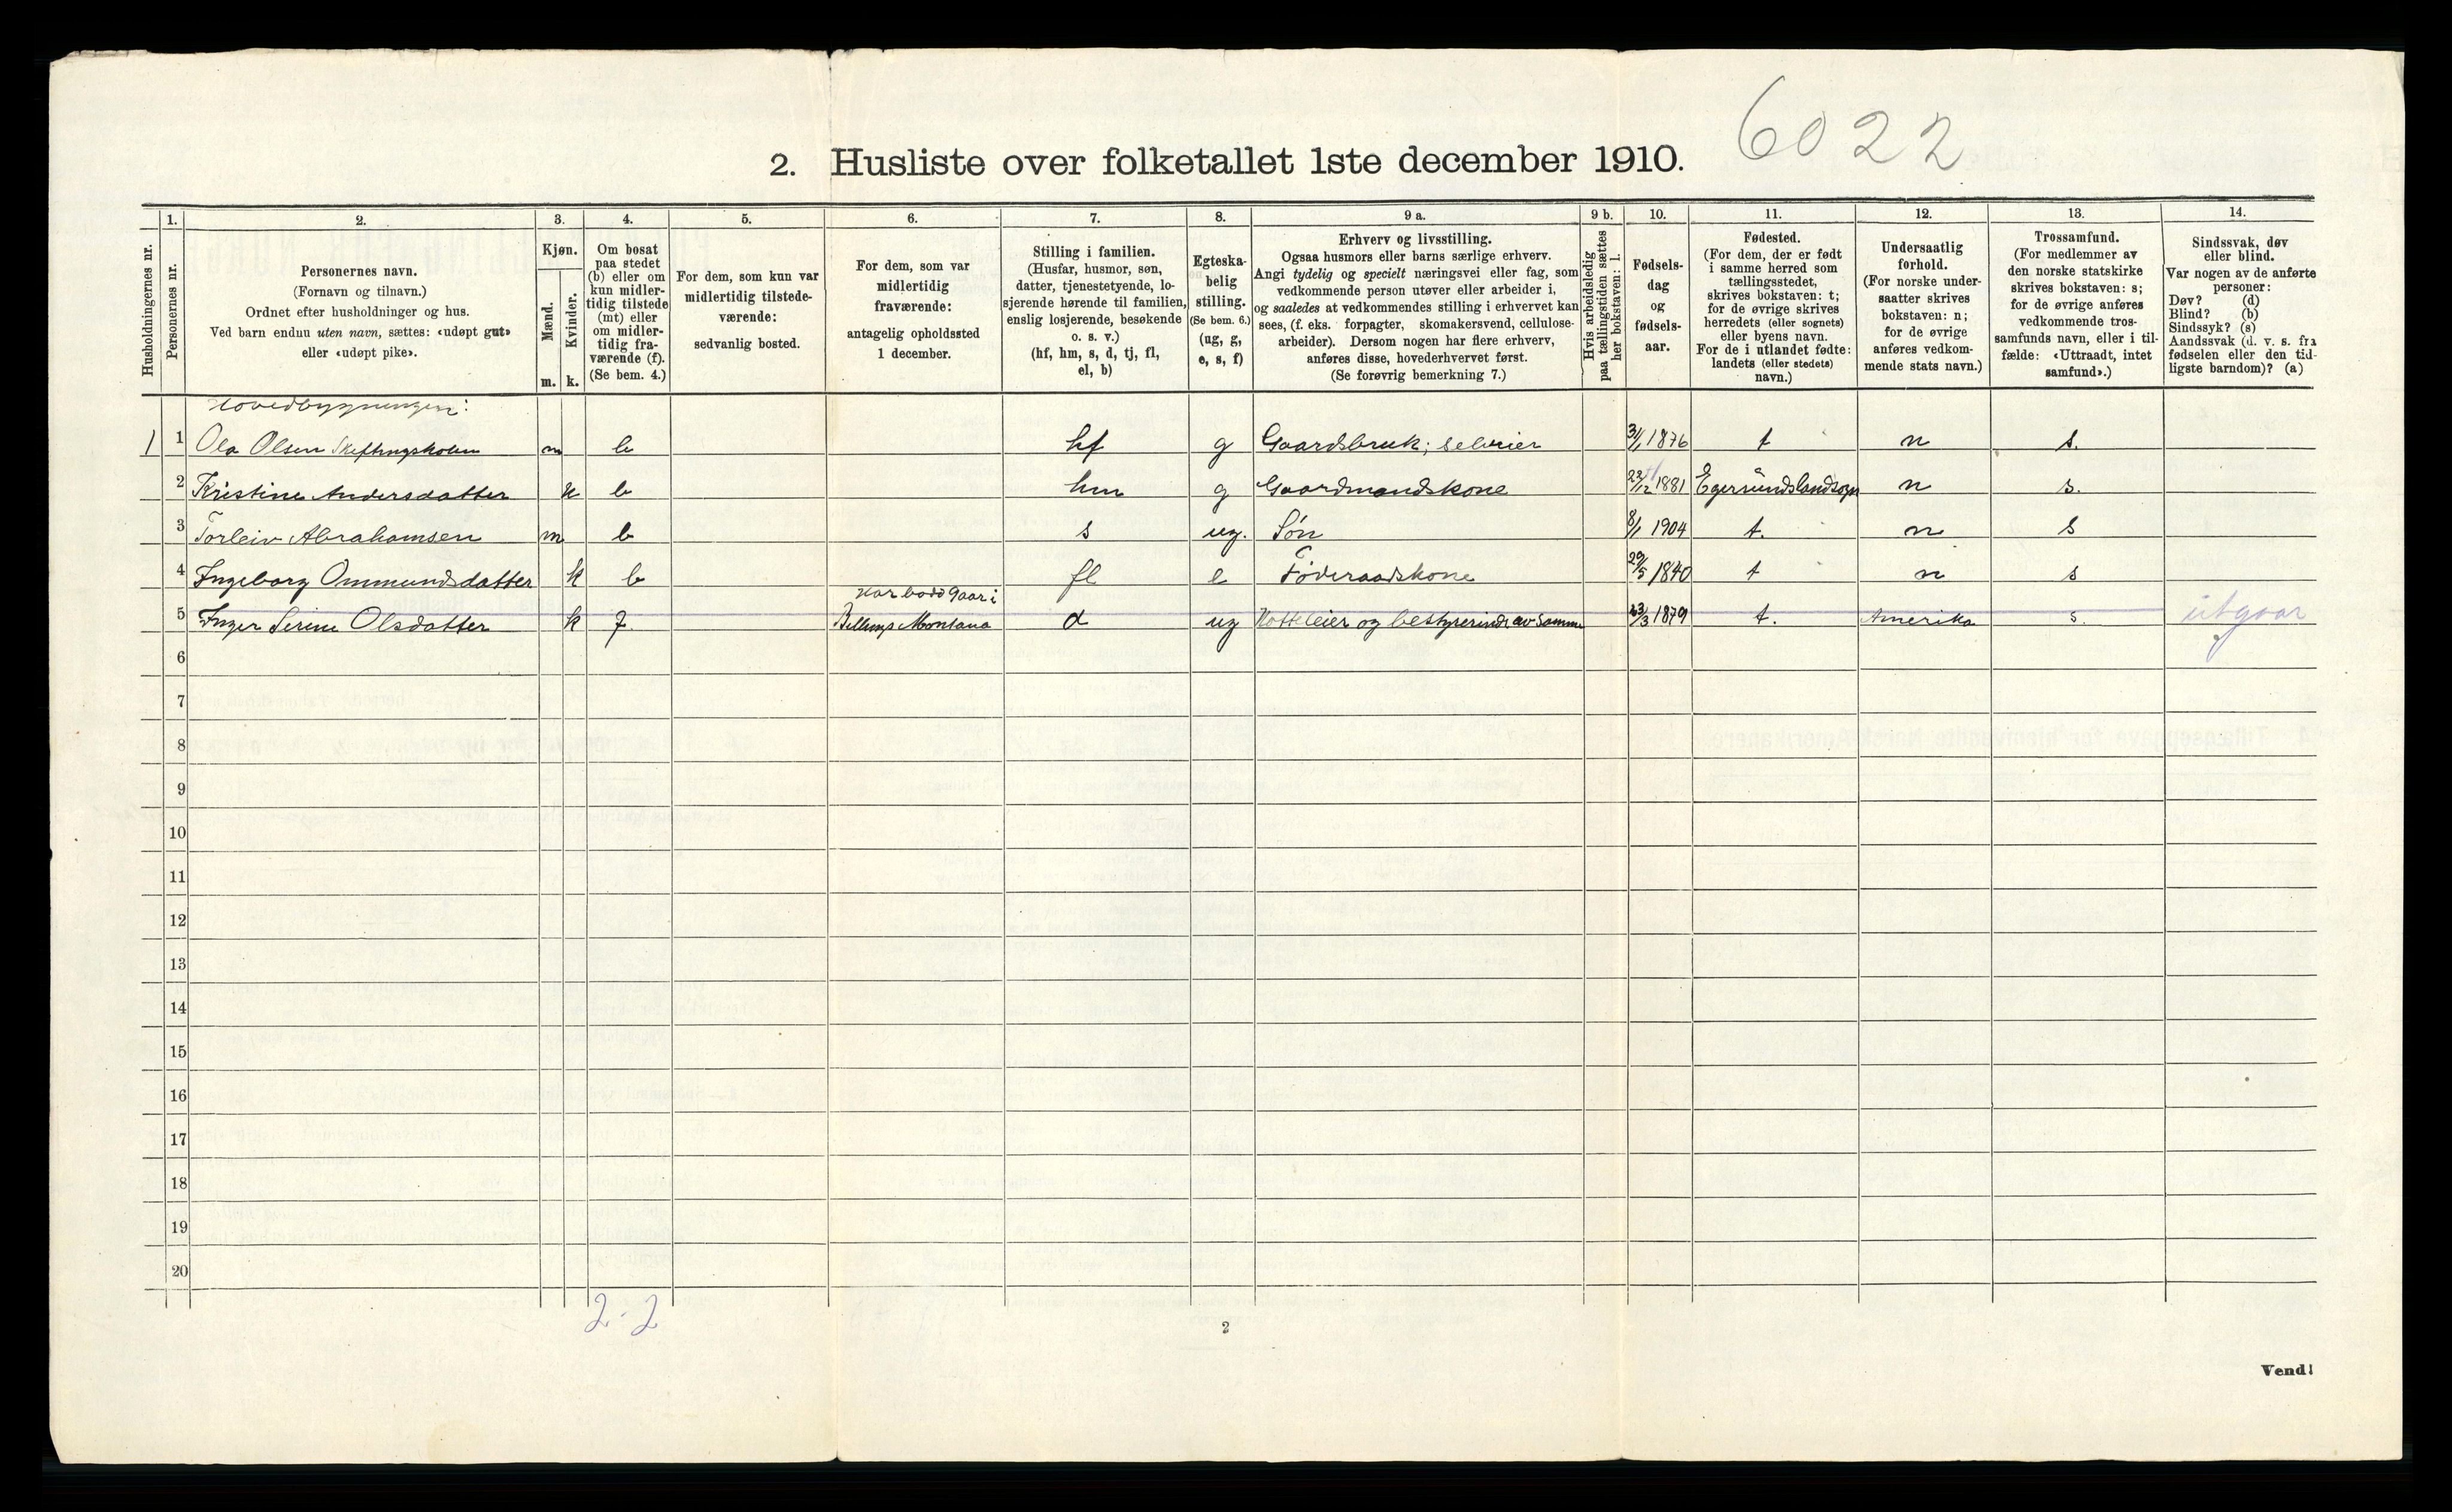 6022
2. Husliste over folketallet 1ste december 1910.
Husholdningernes nr.
1.
Personernes nr.
2.
Personernes navn.
(Fornavn og tilnavn.)
Ordnet efter husholdninger og hus.
Ved barn endnu uten navn, sættes: «udøpt gut»
eller «udøpt pike».
3.
Kjøn.
Mænd.
m.
Kvinder.
k.
4.
Om bosat
paa stedet
(b) eller om
kun midler-
tidig tilstede
(mt) eller
om midler-
tidig fra-
værende (f).
(Se bem. 4.)
5.
For dem, som kun var
midlertidig tilstede-
værende:
sedvanlig bosted.
6.
For dem, som var
midlertidig
fraværende:
antagelig opholdssted
1 december.
7.
Stilling i familien.
(Husfar, husmor, søn,
datter, tjenestetyende, lo-
sjerende hørende til familien,
enslig losjerende, besøkende
o. s. v.)
(hf, hm, s, d, tj, fl,
el, b)
8.
Egteska-
belig
stilling.
(Se bem. 6.)
(ug, g,
e, s, f)
9 a.
Erhverv og livsstilling.
Ogsaa husmors eller barns særlige erhverv.
Angi tydelig og specielt næringsvei eller fag, som
vedkommende person utøver eller arbeider i,
og saaledes at vedkommendes stilling i erhvervet kan
sees, (f. eks. forpagter, skomakersvend, cellulose-
arbeider). Dersom nogen har flere erhverv,
anføres disse, hovederhvervet først.
(Se forøvrig bemerkning 7.)
9 b.
Hvis arbeidsledig
paa tællingstiden sættes
her bokstaven: l.
10.
Fødsels-
dag
og
fødsels-
aar.
11.
Fødested.
(For dem, der er født
i samme herred som
tællingsstedet,
skrives bokstaven: t;
for de øvrige skrives
herredets (eller sognets)
eller byens navn.
For de i utlandet fødte:
landets (eller stedets)
navn.)
12.
Undersaatlig
forhold.
(For norske under-
saatter skrives
bokstaven: n;
for de øvrige
anføres vedkom-
mende stats navn.)
13.
Trossamfund.
(For medlemmer av
den norske statskirke
skrives bokstaven: s;
for de øvrige anføres
vedkommende tros-
samfunds navn, eller i til-
fælde: «Uttraadt, intet
samfund».)
14.
Sindssvak, døv
eller blind.
Var nogen av de anførte
personer:
Døv? (d)
Blind? (b)
Sindssyk? (s)
Aandssvak (d. v. s. fra
fødselen eller den tid-
ligste barndom)? (a)
Hovedbygningen:
1 1 Ola Olsen m b hf g Gaardsbruk; selveier 31/1 1876 t n s.
2 Kristine Andersdatter k b hm g Gaardmandskone 22/12 1881 Egersundslandsogn n s.
3 Torleiv Abrahamsen m b s ug. Søn 8/1 1904 t. n s
4 Ingeborg Ommundsdatter k b fl e Føderaadskone 29/5 1840 t n s
5 Inger Serine Olsdatter k f. Har bodd 9 aar i
Billings Montana d ug Hotteleier og bestyrerinde av samme 23/3 1879 t. Amerika s. utgaar
6
7
8
9
10
11
12
13
14
15
16
17
18
19
20
2-2
2
Vend!